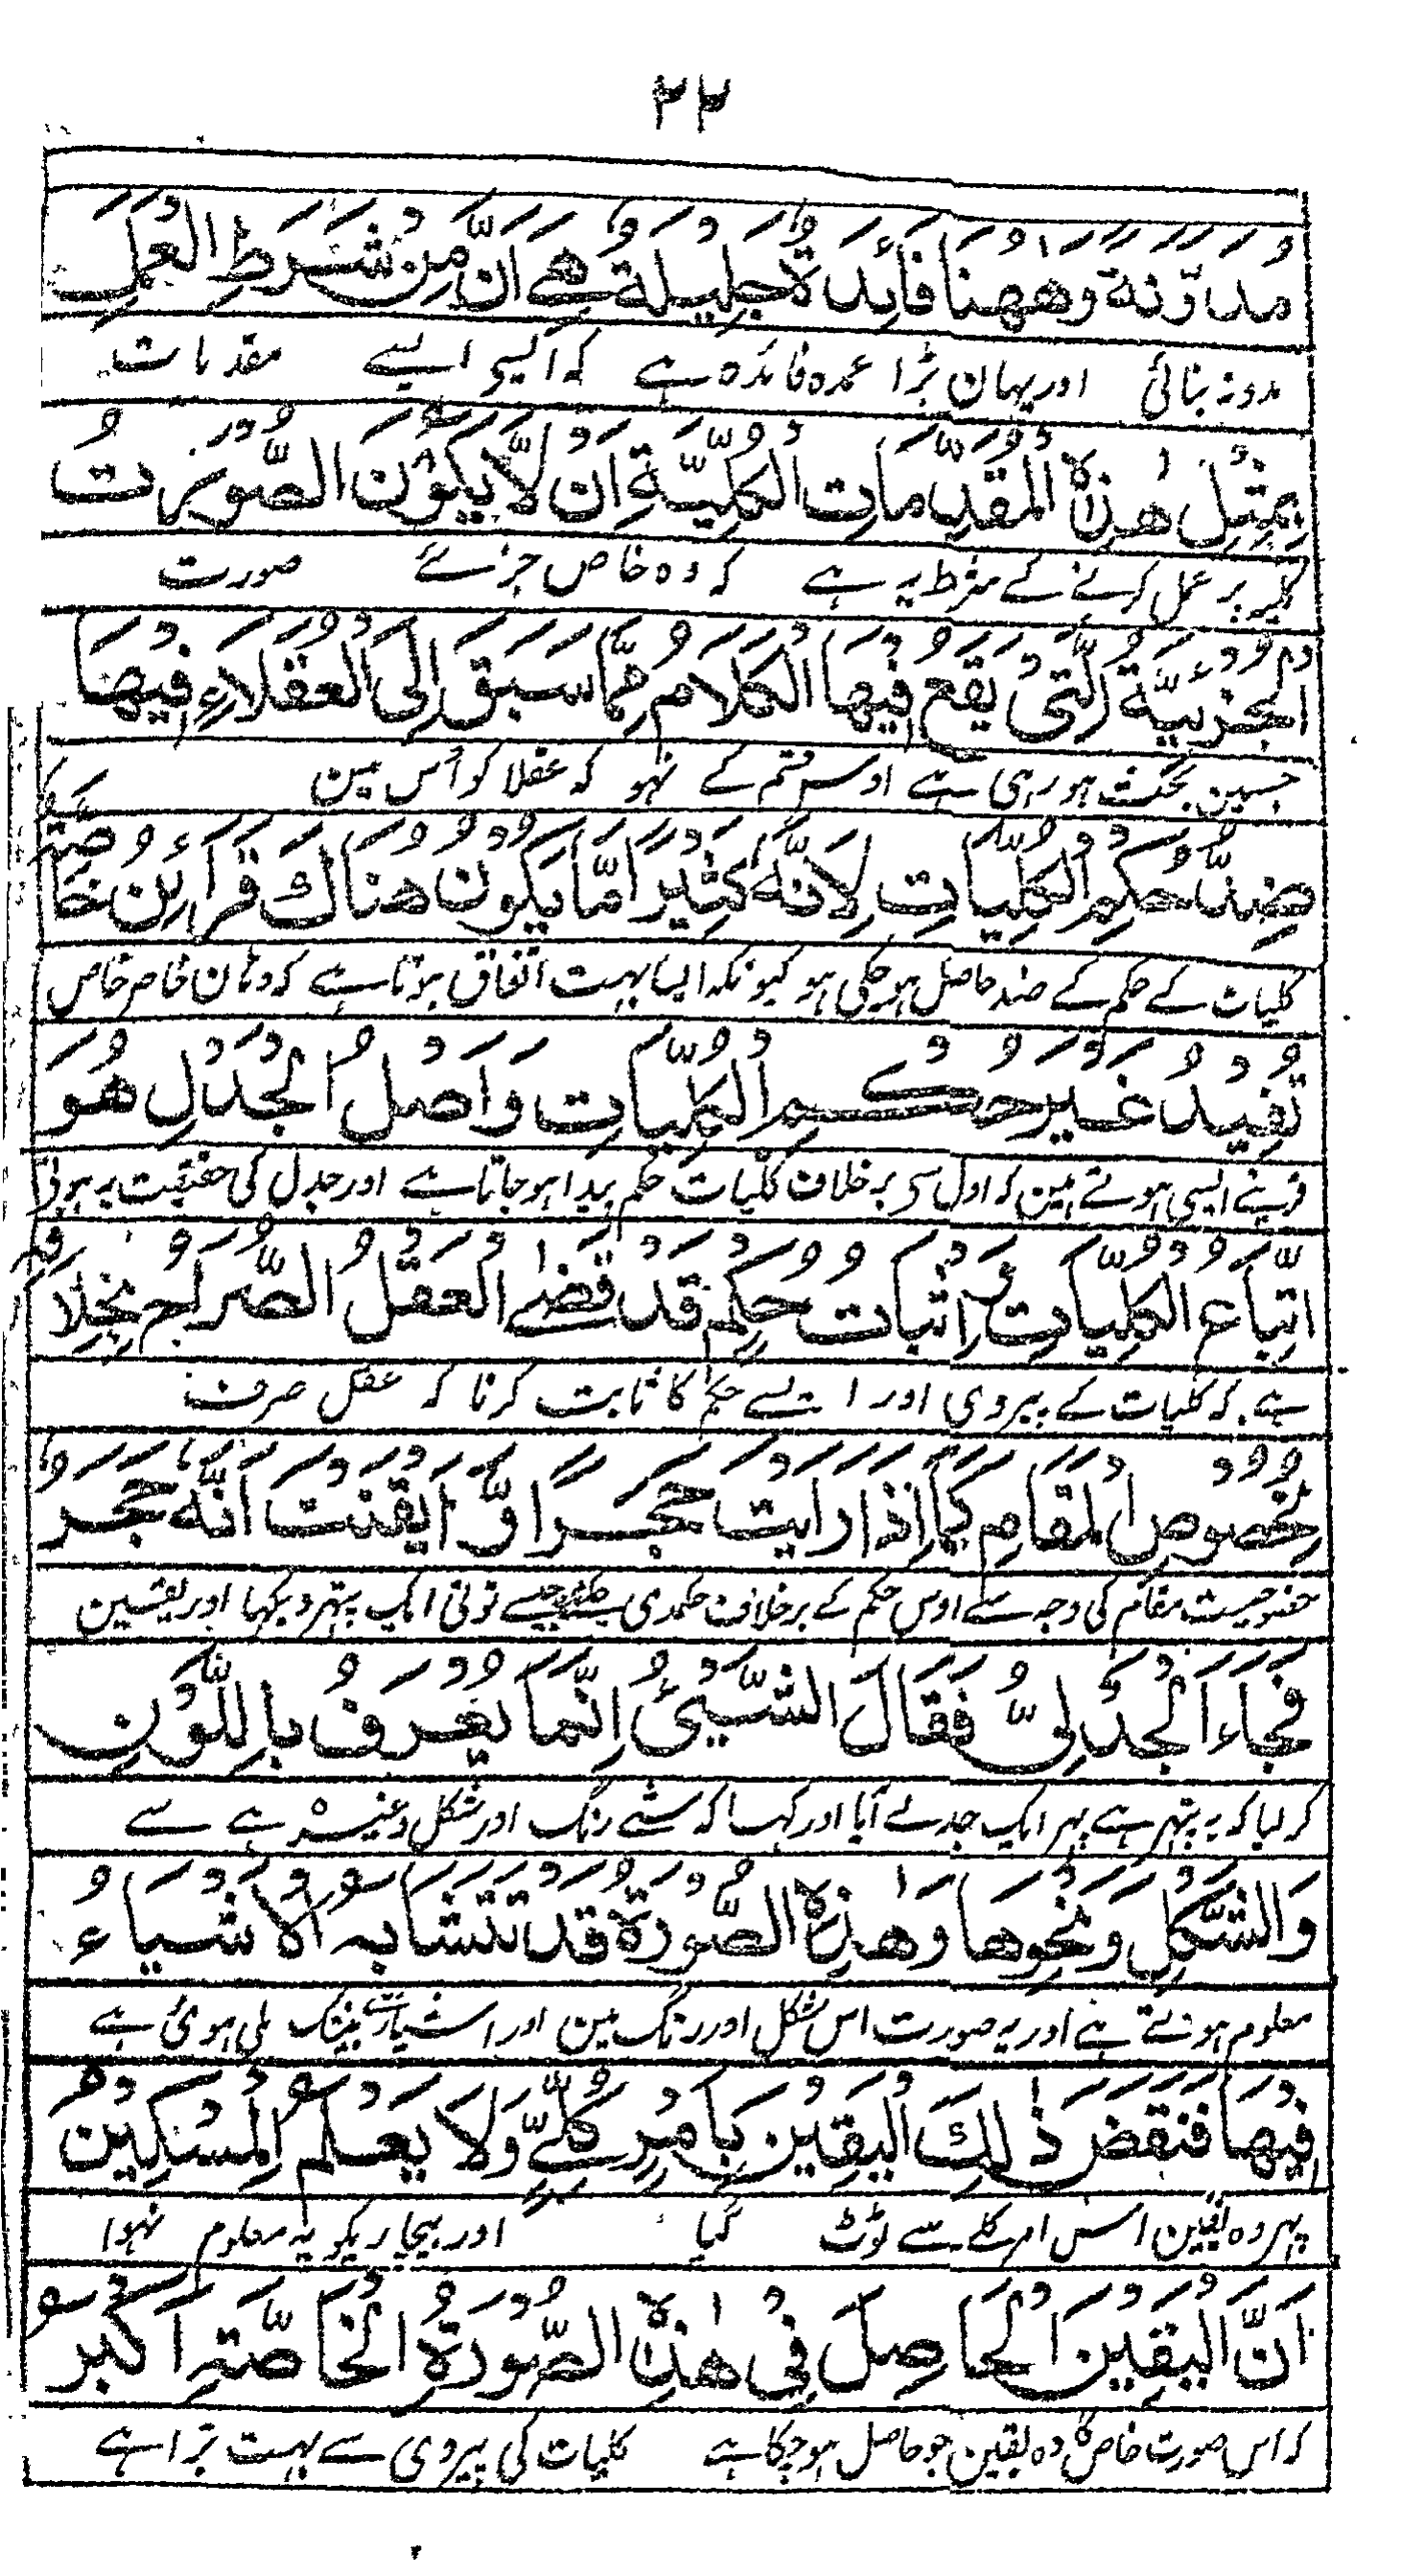 ۲۲
مدوّنة وههنا فائدة جليلة هي انّ من شرط العمل
مدونہ بنائی اور یہان بڑا عمدہ فائدہ ہے کہ ایسے مقدمات
بمثل هذه المقدّمات الكليّة ان لّا يكون الصّورت
کلیہ پر عمل کرنے کے شرط یہ ہے کہ وہ خاص جزئے صورت
الجزئيّة الّتي يقع فيها الكلام ممّا سبق الى العقلاء فيها
جسمین بحث ہو رہی ہے اوس قسم کے نہو کہ عقلا کو اُس مین
ضدّ حكم الكليّات لانّه كثيرا مّا يكون هناك قرائن خاصّة
کلیات کے حکم کے ضد حاصل ہو چکی ہو کیونکہ ایسا بہت اتفاق ہوتا ہے کہ وہان خاص خاص
تفيد غير حكم الكليّات واصل الجدل هو
قرینے ایسی ہوتے ہین کہ اول سی بر خلاف کلیات حکم پیدا ہو جاتا ہے اور جدل کی حقیقت یہ ہوتی
اتّباع الكليّات واثبات حكم قد قضى العقل الصّراح بخلافه
ہے کہ کلیات کے پیروی اور ایسے حکم کا ثابت کرنا کہ عقل صرف
لخصوص المقام كما اذا رايت حجرا وّ ايقنت انّه حجر
خصوصیت مقام کی وجہ سے اوس حکم کے برخلاف حکم دی چکے جیسے تونی ایک پتہر دیکہا اور یقین
فجاء الجدليّ فقال الشّيئ انّما يعرف باللّون
کر لیا کہ یہ پتہر ہے پہر ایک جدلے آیا اور کہا کہ شے رنگ اور شکل وغیرہ ہے سے
والشّكل ونحوها وهذه الصّورة قد تتشابه الاشياء
معلوم ہوتے ہے اور یہ صورت اس شکل اور رنگ مین اور اشیا سے بیشک ملی ہوئی ہے
فيها فنقض ذلك اليقين بامر كلّي ولا يعلم المسكين
پہر وہ یقین اس امر کلے سے ٹوٹ گیا اور بیچاریکو یہ معلوم نہوا
انّ اليقين الحاصل في هذه الصّورة الخاصّة اكبر
کہ اس صورت خاص کا وہ یقین جو حاصل ہو چکا ہے کلیات کی پیروی سے بہت بڑا ہے